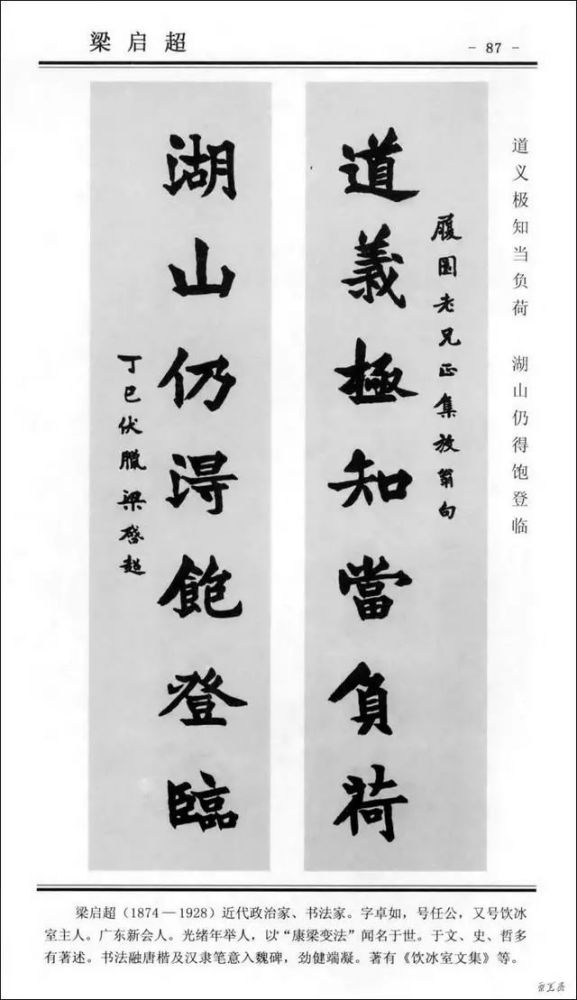 梁启超
- 87 -
道义极知当负荷 湖山仍得饱登临
履园老兄正集放翁句
道義極知當負荷
湖山仍得飽登臨
丁巳伏臘梁啓超
梁启超（1874—1928）近代政治家、书法家。字卓如，号任公，又号饮冰
室主人。广东新会人。光绪年举人，以“康梁变法”闻名于世。于文、史、哲多
有著述。书法融唐楷及汉隶笔意入魏碑，劲健端凝。著有《饮冰室文集》等。